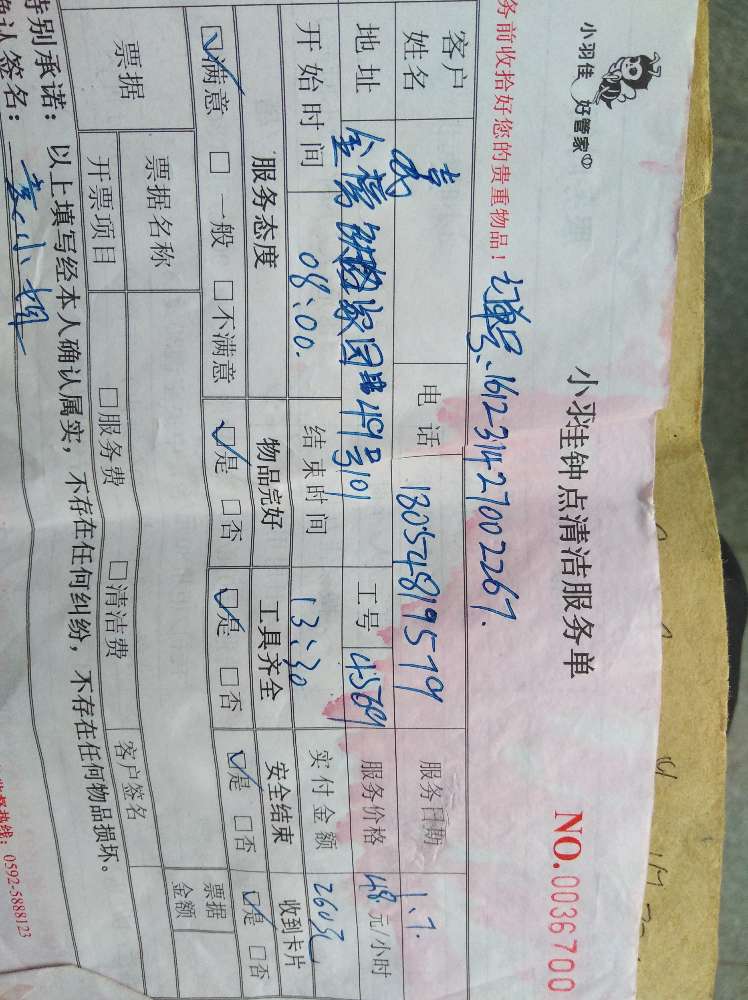 小羽佳 好管家
小羽佳钟点清洁服务单
NO.0036700
务前收拾好您的贵重物品！
订单号：161231427002267.
客户姓名 袁 电话 18054819579 服务日期 1.7.
地址 49号101 工号 4569 服务价格 48元/小时
开始时间 08:00. 结束时间 13:30 实付金额 260元
服务态度 物品完好 工具齐全 安全结束 收到卡片
☑满意 □一般 □不满意 ☑是 □否 ☑是 □否 ☑是 □否 ☑是 □否
票据 票据名称 客户签名 票据金额
开票项目 □服务费 □清洁费
特别承诺：以上填写经本人确认属实，不存在任何纠纷，不存在任何物品损坏。
确认签名： 袁小姐
监督热线：0592-5888123